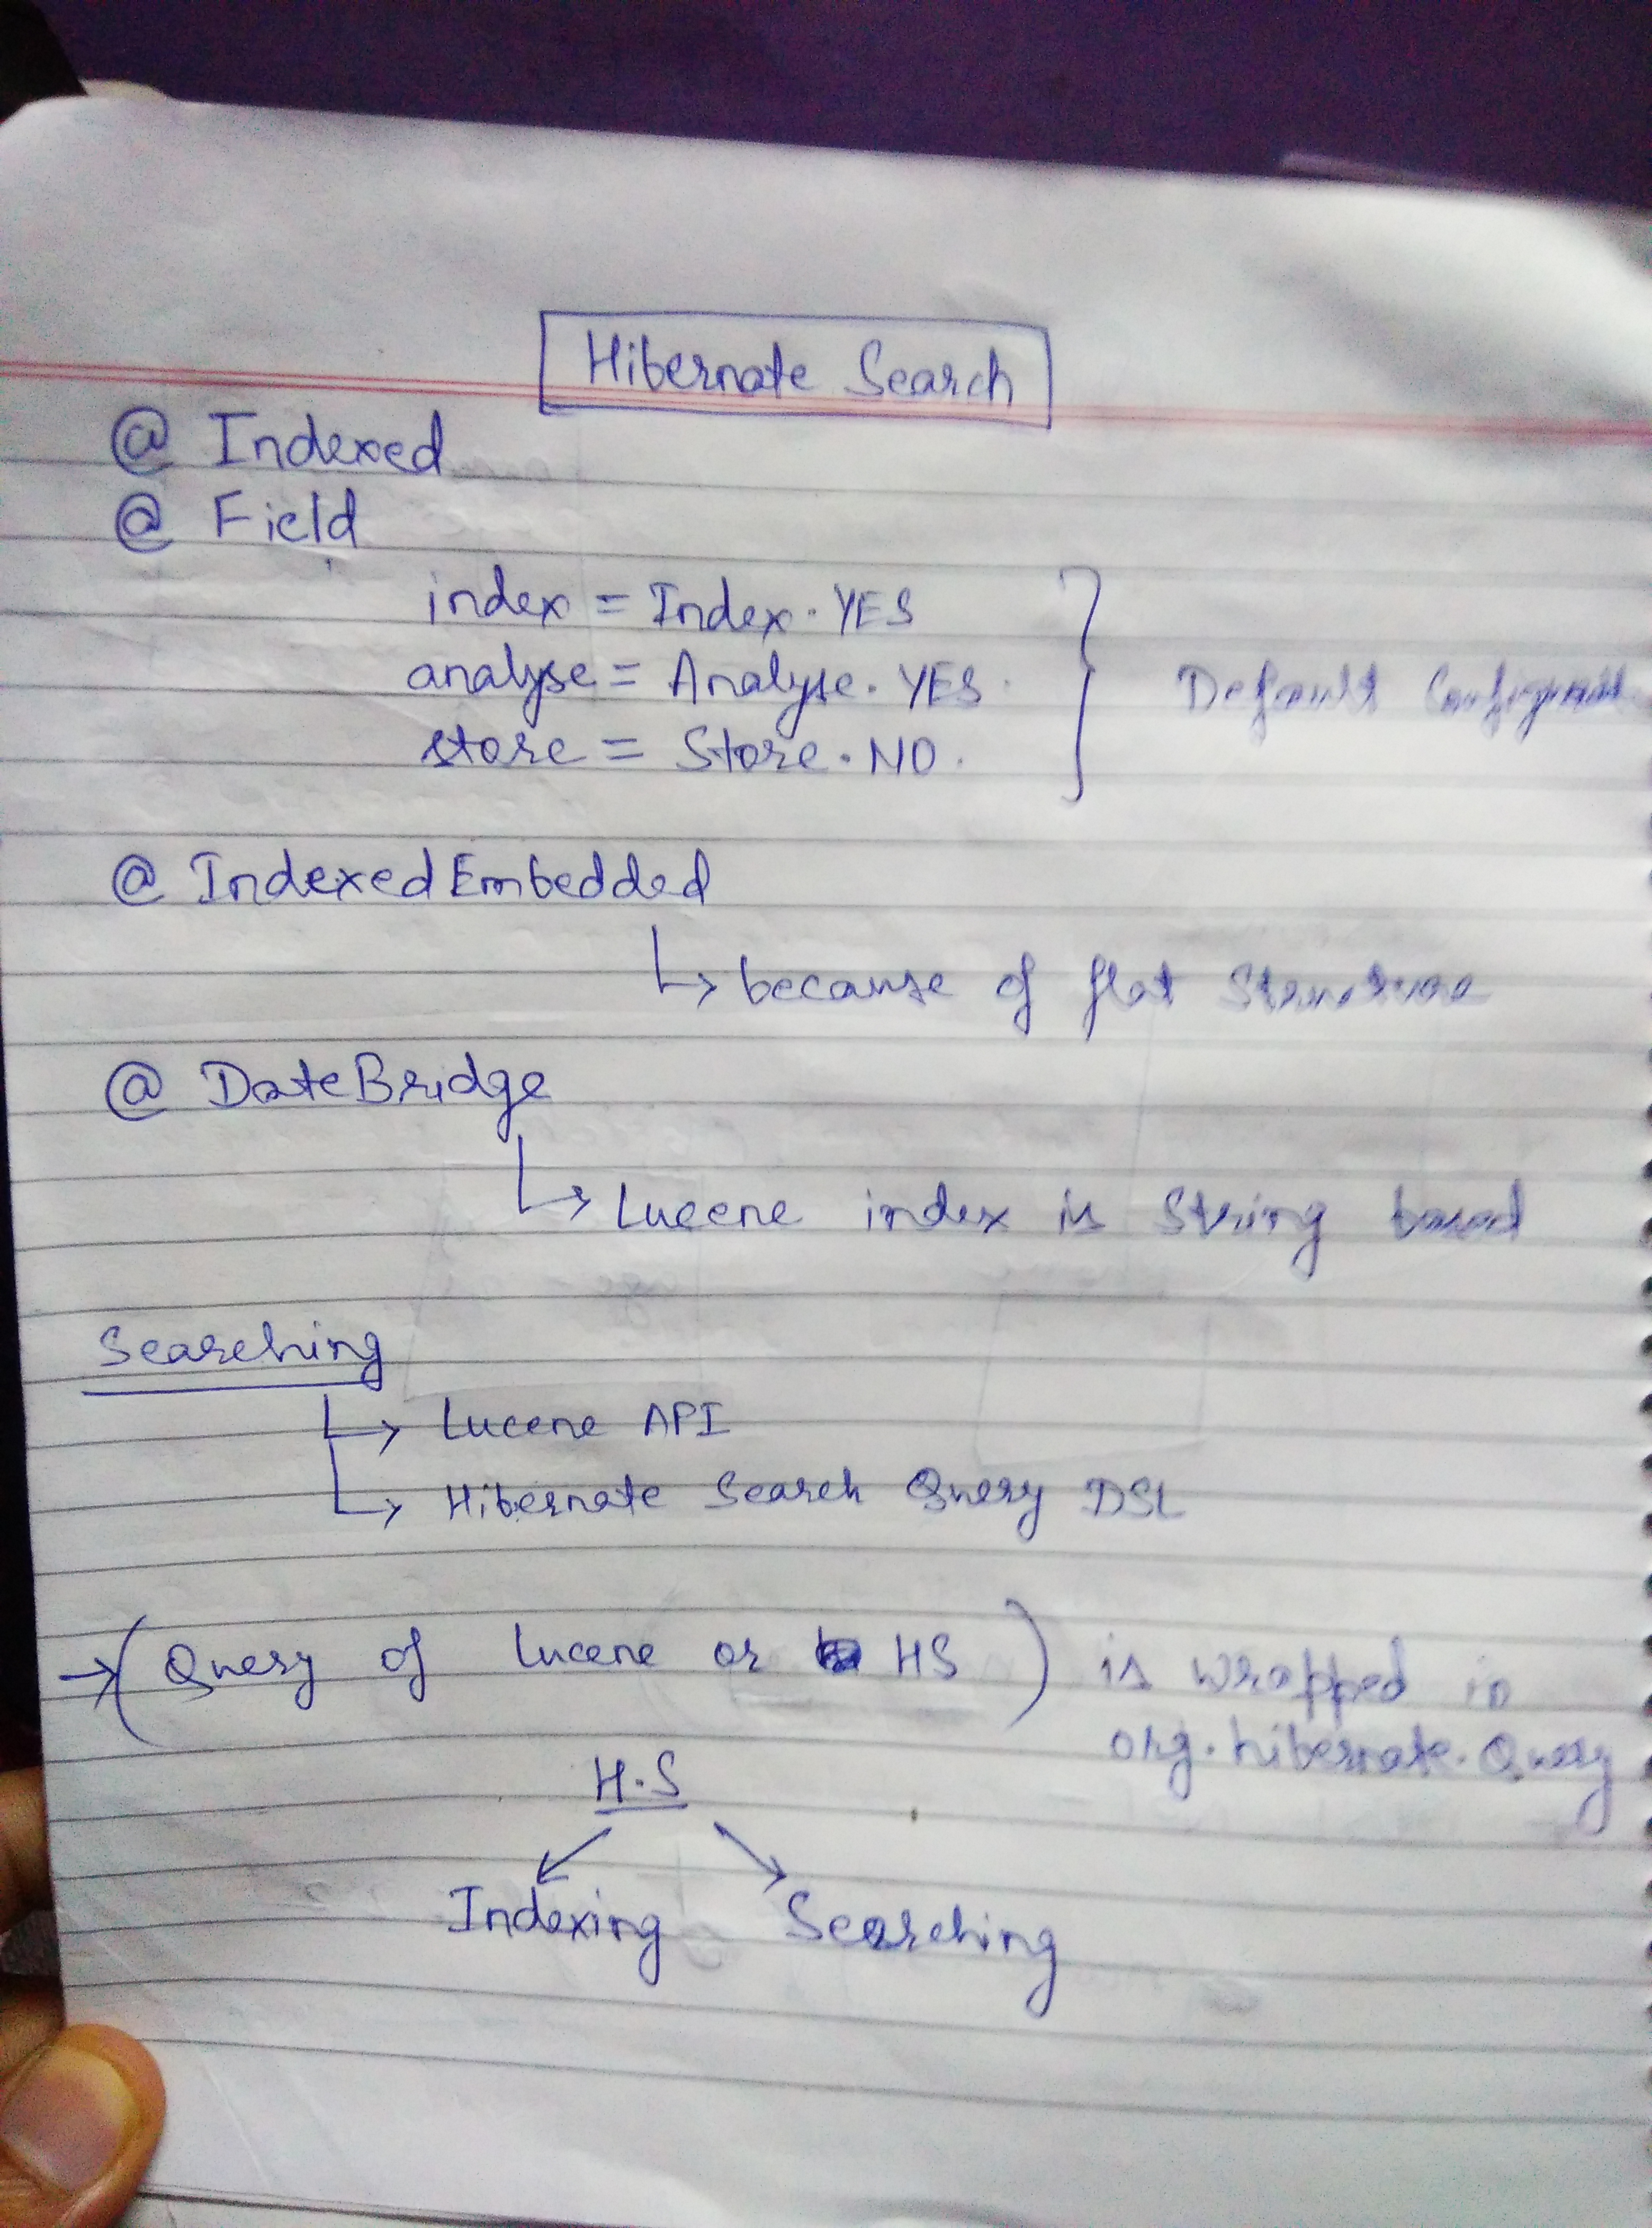 Hibernate Search
@ Indexed
@ Field
index = Index.YES
analyse = Analyse.YES
store = Store.NO.
} Default
@ IndexedEmbedded
↳ because of flat Structure
@ DateBridge
↳ Lucene index is String based
Searching
↳ Lucene API
↳ Hibernate Search Query DSL
→ (Query of Lucene or HS) is wrapped in
org.hibernate.Query
H.S
Indexing Searching